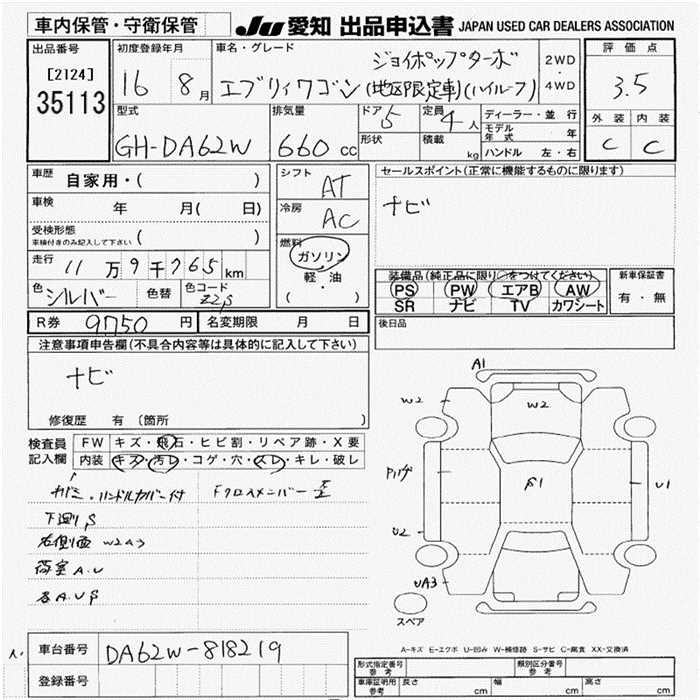 車内保管・守衛保管
JU 愛知 出品申込書 JAPAN USED CAR DEALERS ASSOCIATION
出品番号
[2124]
35113
初度登録年月
16 8月
車名・グレード
ジョイポップターボ
エブリィワゴン(地区限定車)(ハイルーフ)
2WD
・
4WD
評価点
3.5
外装 内装
C C
型式
GH-DA62W
排気量
660 cc
ドア 5
形状
定員 4人
積載 kg
ディーラー・並行
モデル年式 年
ハンドル 左・右
車歴 自家用・( )
車検 年 月( 日)
受検形態
車検付きのみ記入して下さい ( )
走行 11万9千765km
色 シルバー 色替 色コード Z2S
シフト AT
冷房 AC
燃料
ガソリン
軽・油
( )
セールスポイント(正常に機能するものに限ります)
ナビ
装備品(純正品に限り○をつけてください)
PS PW エアB AW
SR ナビ TV カワシート
新車保証書
有・無
R券 9750 円 名変期限 月 日
後日品
注意事項申告欄(不具合内容等は具体的に記入して下さい)
ナビ
修復歴 有(箇所 )
検査員
記入欄
FW キズ・飛石・ヒビ割・リペア跡・X要
内装 キズ・汚レ・コゲ・穴・スレ・キレ・破レ
ハンドルカバー付
Fクロスメンバー
下廻り S
右側面 W2A3
荷室 A.U
各A.U S
A1
W2
W2
U1
U2
S1
UA3
スペア
A-キズ E-エクボ U-凹み W-補修跡 S-サビ C-腐食 XX-交換済
車台番号 DA62W-818219
登録番号
形式指定番号
参考
類別区分番号
参考
車庫証明用
参考
長さ cm 幅 cm 高さ cm